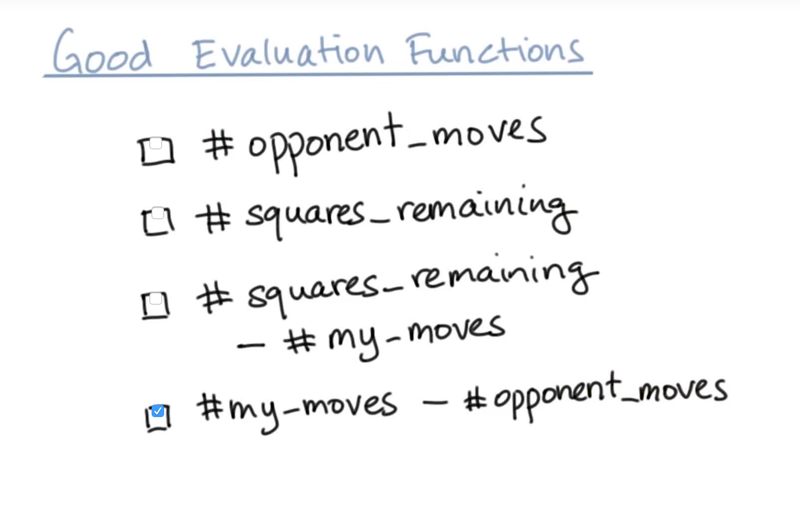 Good Evaluation Functions
# opponent_moves
# squares_remaining
# squares_remaining
- # my-moves
#my-moves - #opponent_moves